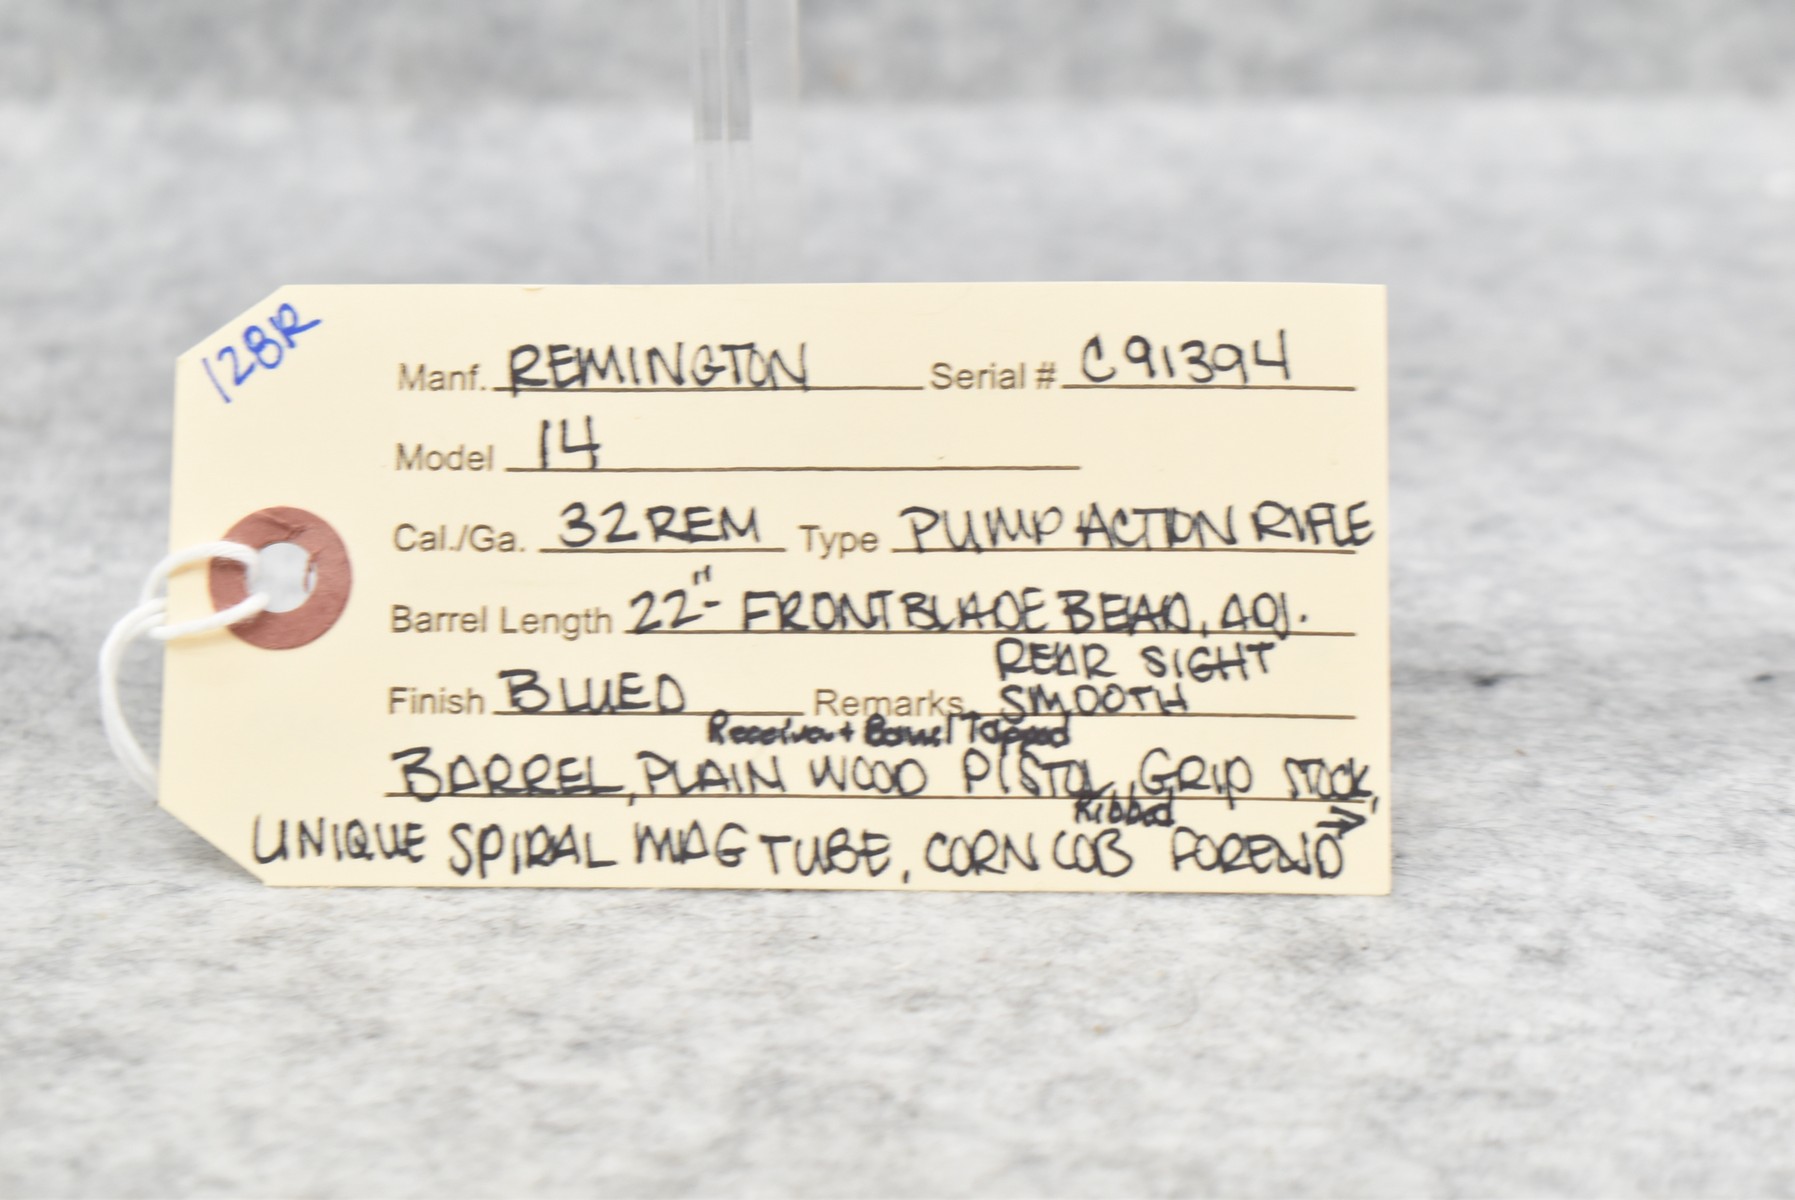 128R
Manf. REMINGTON Serial # C91394
Model 14
Cal./Ga. 32 REM Type PUMP ACTION RIFLE
Barrel Length 22"- FRONT BLADE BEAD, ADJ.
REAR SIGHT
Finish BLUED Remarks SMOOTH
Receiver + Barrel Tapped
BARREL, PLAIN WOOD PISTOL GRIP STOCK,
Ribbed →
UNIQUE SPIRAL MAG TUBE, CORN COB FOREND